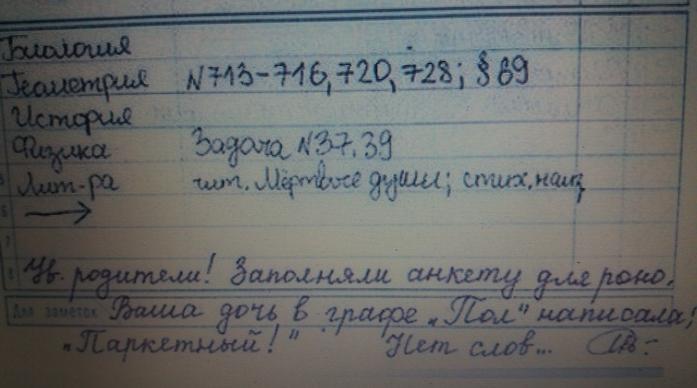 Биология
Геометрия N713-716, 720, 728; § 69
История
Физика Задача N37, 39
Лит-ра чит. Мёртвые души; стих. наиз
5
6
7
8 Ув. родители! Заполняли анкету для роно.
Для заметок Ваша дочь в графе „Пол" написала:
„Паркетный!" Нет слов...